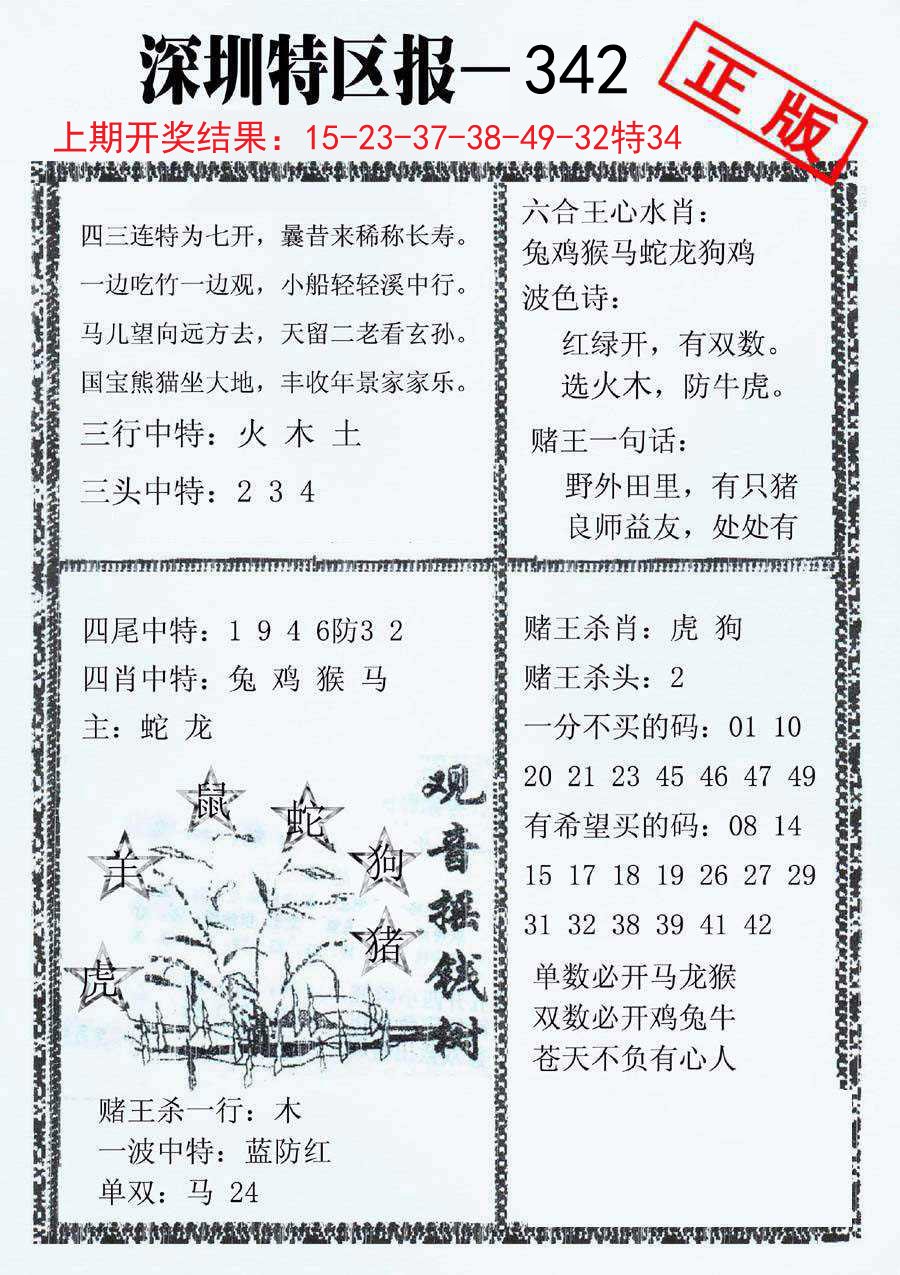 深圳特区报—342
正版
上期开奖结果：15-23-37-38-49-32特34
四三连特为七开，曩昔来稀称长寿。
一边吃竹一边观，小船轻轻溪中行。
马儿望向远方去，天留二老看玄孙。
国宝熊猫坐大地，丰收年景家家乐。
三行中特：火 木 土
三头中特：2 3 4
六合王心水肖：
兔鸡猴马蛇龙狗鸡
波色诗：
红绿开，有双数。
选火木，防牛虎。
赌王一句话：
野外田里，有只猪
良师益友，处处有
四尾中特：1 9 4 6防3 2
四肖中特：兔 鸡 猴 马
主：蛇 龙
鼠
蛇
羊
狗
猪
虎
观音摇钱树
赌王杀一行：木
一波中特：蓝防红
单双：马 24
赌王杀肖：虎 狗
赌王杀头：2
一分不买的码：01 10
20 21 23 45 46 47 49
有希望买的码：08 14
15 17 18 19 26 27 29
31 32 38 39 41 42
单数必开马龙猴
双数必开鸡兔牛
苍天不负有心人